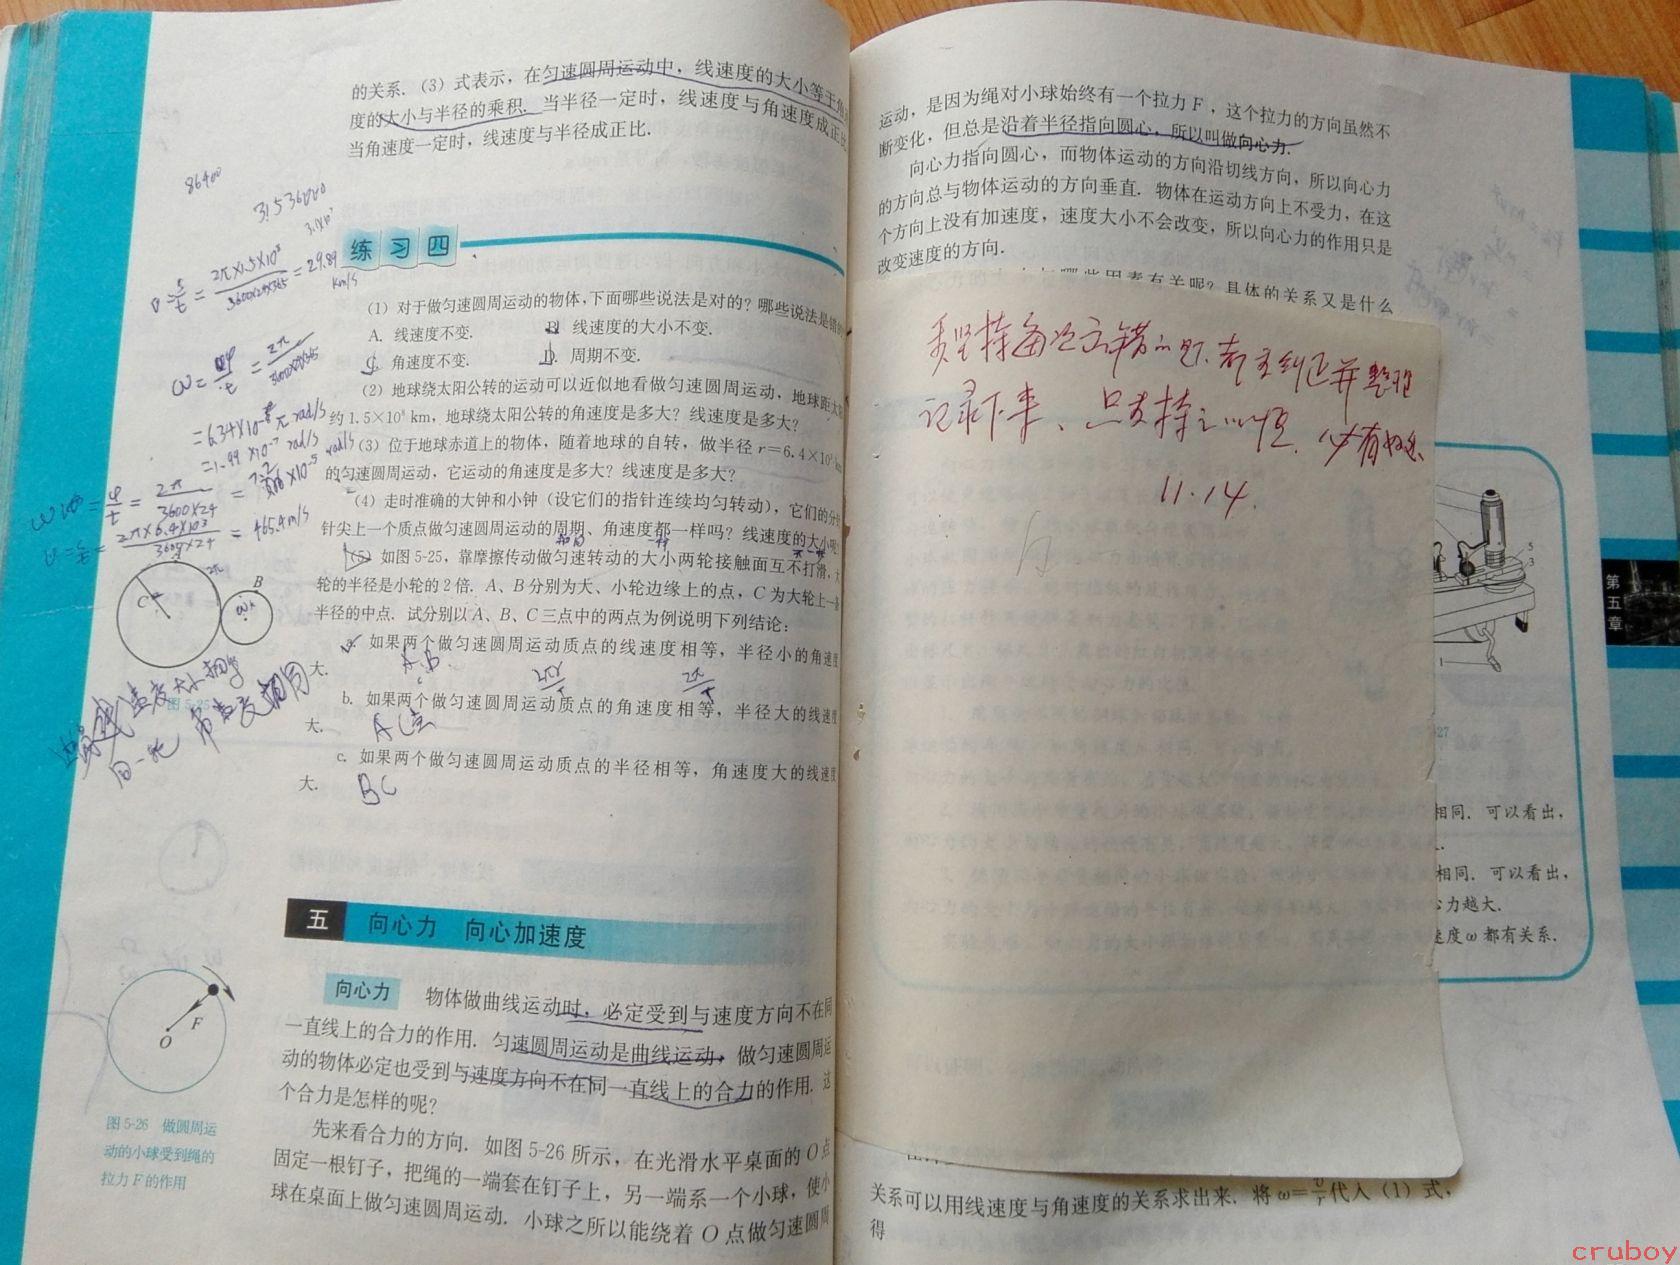 的关系. (3) 式表示, 在匀速圆周运动中, 线速度的大小等于角
度的大小与半径的乘积. 当半径一定时, 线速度与角速度成正比
当角速度一定时, 线速度与半径成正比.
86400
31536000
练习四
v = s/t = 2π×1.5×10⁸ / 3600×24×365 = 29.89 km/s
(1) 对于做匀速圆周运动的物体, 下面哪些说法是对的? 哪些说法是错的
A. 线速度不变. B. 线速度的大小不变.
C. 角速度不变. D. 周期不变.
(2) 地球绕太阳公转的运动可以近似地看做匀速圆周运动, 地球距太
约 1.5×10⁸ km, 地球绕太阳公转的角速度是多大? 线速度是多大?
=1.99×10⁻⁷ rad/s
(3) 位于地球赤道上的物体, 随着地球的自转, 做半径 r=6.4×10³ km
的匀速圆周运动, 它运动的角速度是多大? 线速度是多大?
(4) 走时准确的大钟和小钟 (设它们的指针连续均匀转动), 它们的分针
针尖上一个质点做匀速圆周运动的周期、角速度都一样吗? 线速度的大小呢
= 465.4 m/s
(5) 如图 5-25, 靠摩擦传动做匀速转动的大小两轮接触面互不打滑, 大
轮的半径是小轮的 2 倍. A、B 分别为大、小轮边缘上的点, C 为大轮上一条
半径的中点. 试分别以 A、B、C 三点中的两点为例说明下列结论:
C
B
a. 如果两个做匀速圆周运动质点的线速度相等, 半径小的角速度
大.
A.B.
b. 如果两个做匀速圆周运动质点的角速度相等, 半径大的线速度
大.
AC
c. 如果两个做匀速圆周运动质点的半径相等, 角速度大的线速度
大.
BC
图 5-25
线速度大小相等
同一轮 角速度相同
五 向心力 向心加速度
向心力 物体做曲线运动时, 必定受到与速度方向不在同
一直线上的合力的作用. 匀速圆周运动是曲线运动, 做匀速圆周运
动的物体必定也受到与速度方向不在同一直线上的合力的作用. 这
个合力是怎样的呢?
先来看合力的方向. 如图 5-26 所示, 在光滑水平桌面的 O 点
固定一根钉子, 把绳的一端套在钉子上, 另一端系一个小球, 使小
球在桌面上做匀速圆周运动. 小球之所以能绕着 O 点做匀速圆周
F
O
图 5-26 做圆周运
动的小球受到绳的
拉力 F 的作用
运动, 是因为绳对小球始终有一个拉力 F, 这个拉力的方向虽然不
断变化, 但总是沿着半径指向圆心, 所以叫做向心力.
向心力指向圆心, 而物体运动的方向沿切线方向, 所以向心力
的方向总与物体运动的方向垂直. 物体在运动方向上不受力, 在这
个方向上没有加速度, 速度大小不会改变, 所以向心力的作用只是
改变速度的方向.
哪些因素有关呢? 具体的关系又是什么
要坚持每次方错的题, 都要纠正并整理
记录下来、只要持之以恒, 必有好处
11.14.
5
3
1
第五章
27
相同. 可以看出,
相同. 可以看出,
心力越大.
速度 ω 都有关系.
关系可以用线速度与角速度的关系求出来. 将 ω=v/r 代入 (1) 式,
得
cruboy